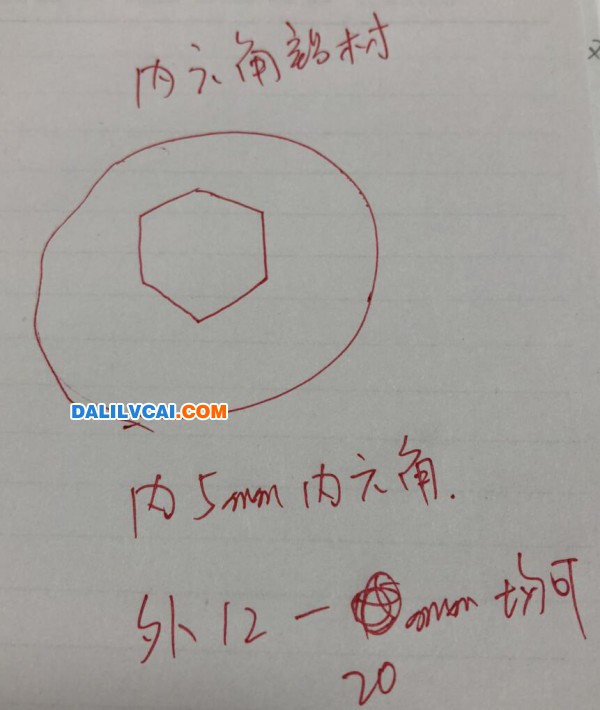 内六角铝材
DALILVCAI.COM
内5mm内六角.
外12-mm均可
20